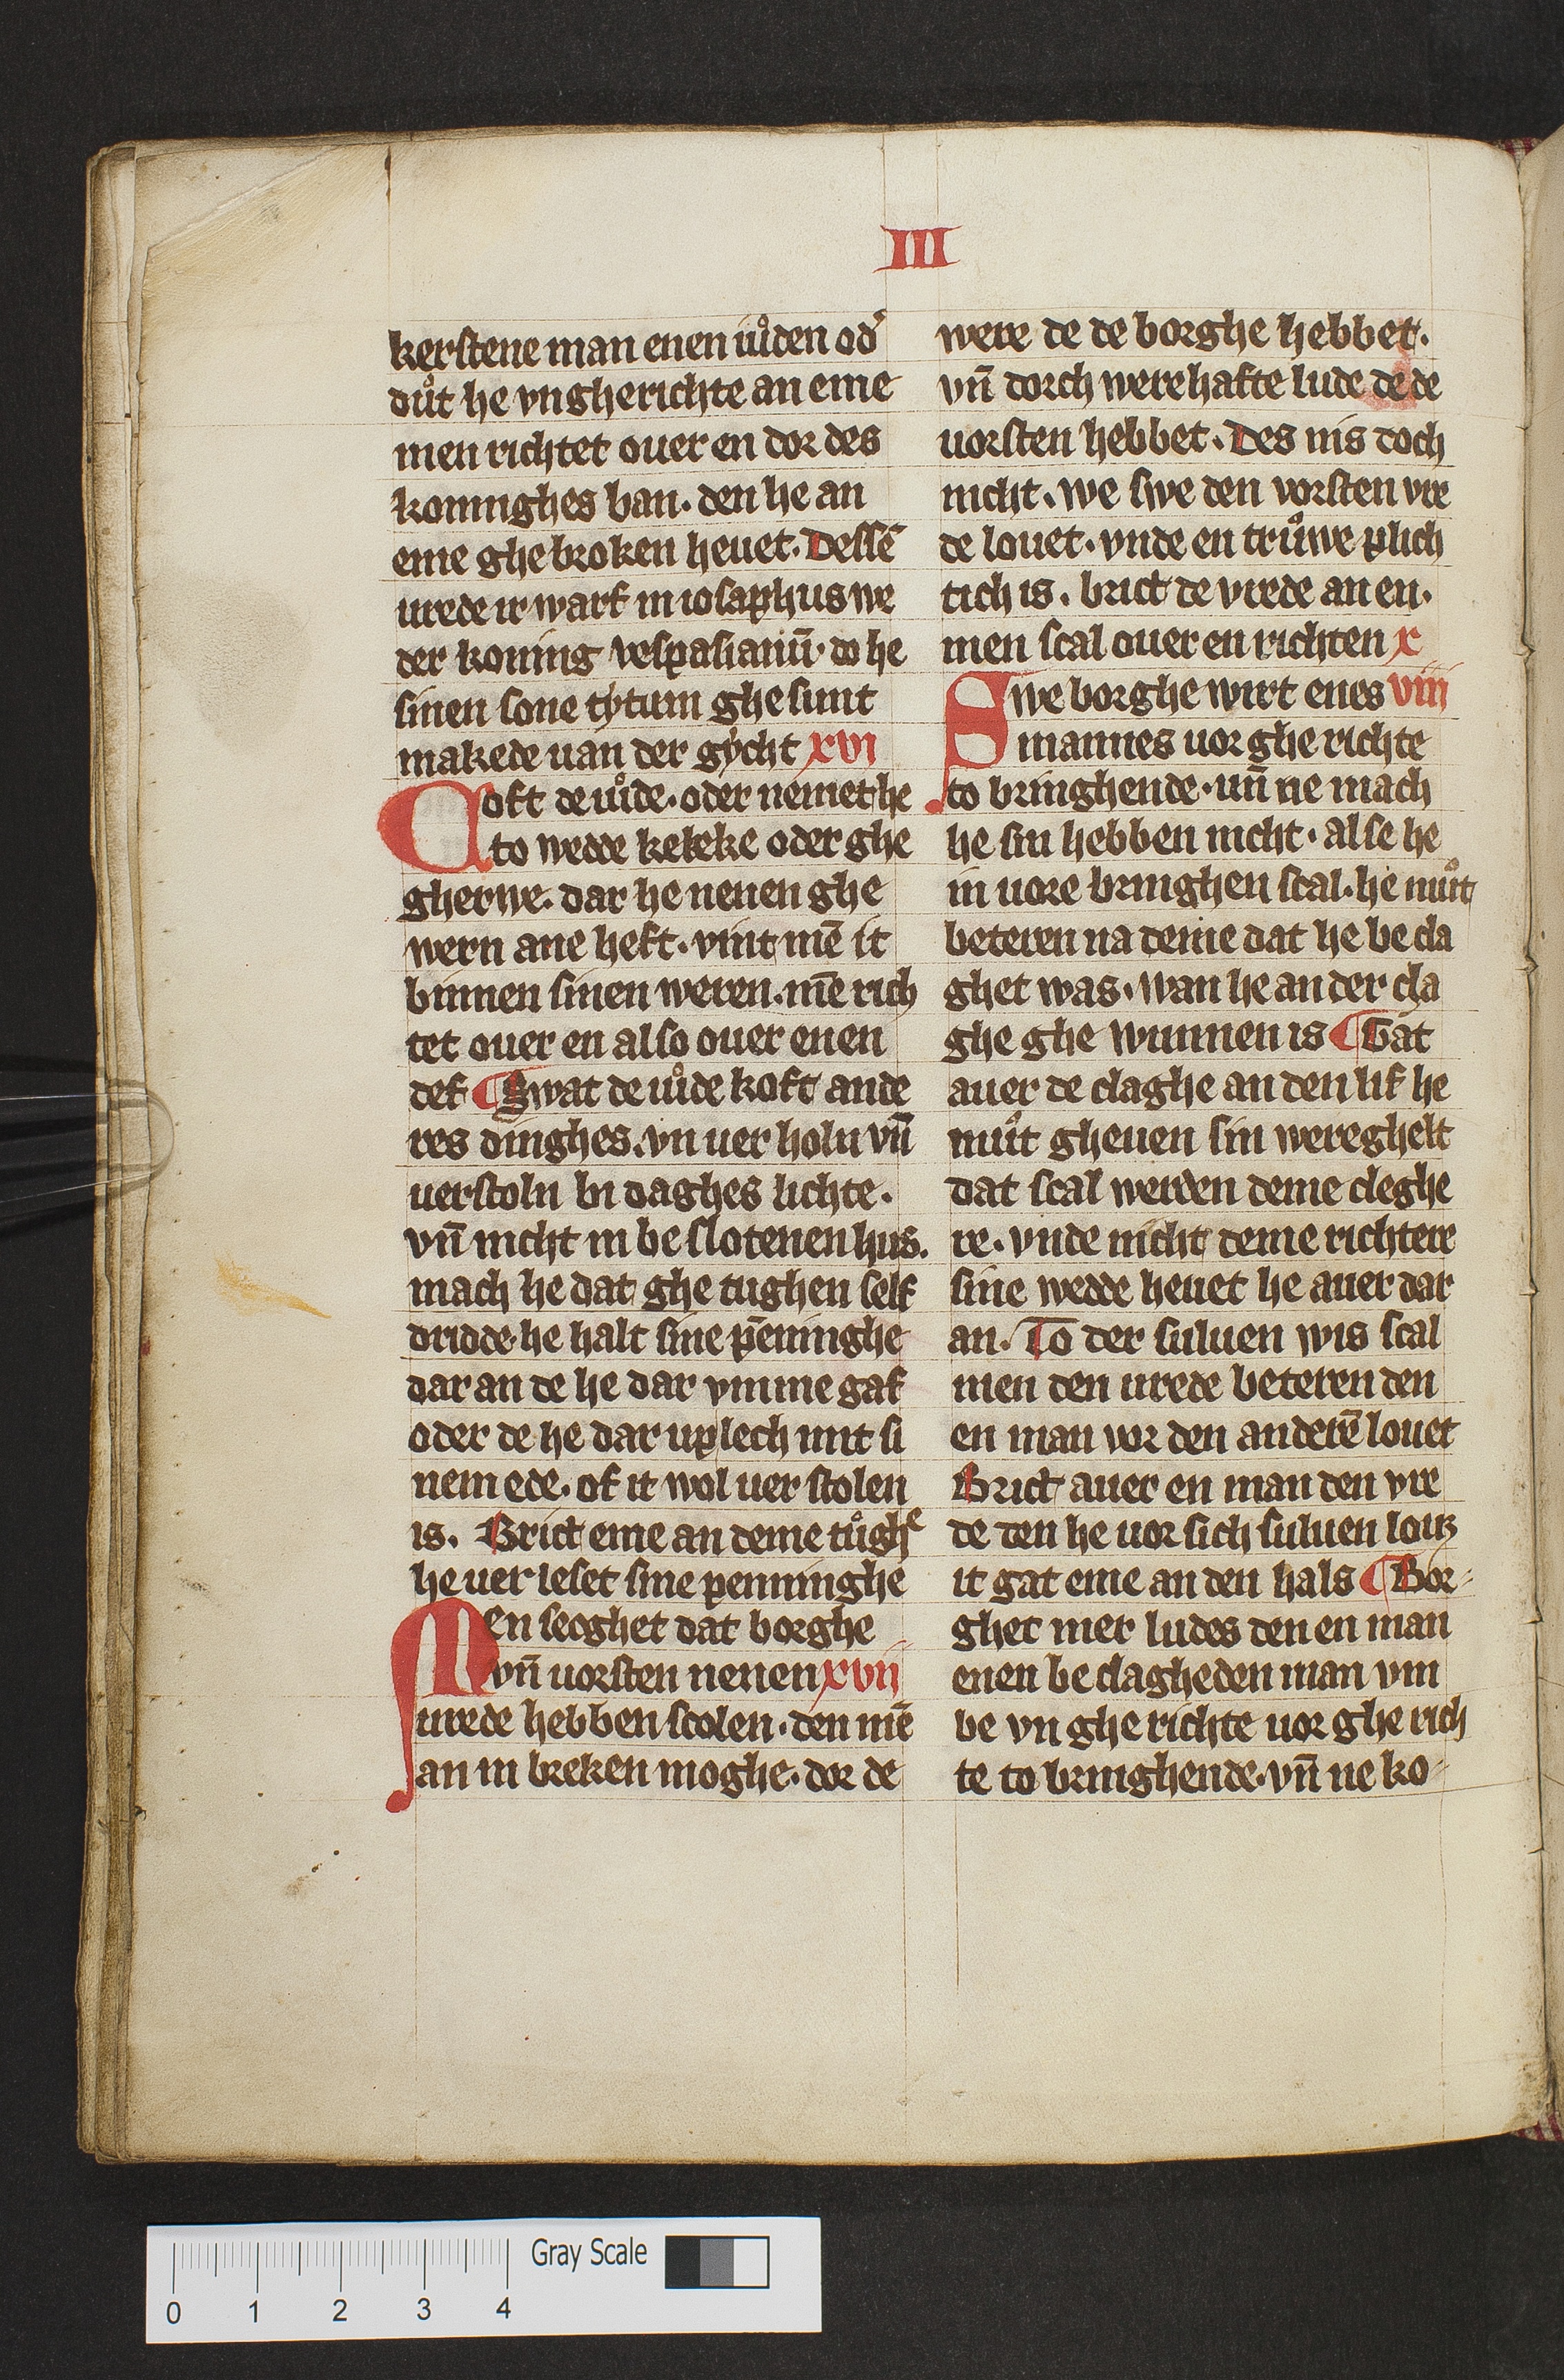 III
kerstene man enen iůden od᷎
důt he vngherichte an eme
men richtet ouer en dor des
koninghes ban. den he an
eme ghebroken heuet. Dessē
urede ir warf in iosaphus we
der koning vespasianū. do he
sinen sone tẏtum ghe sunt
makede uan der gẏcht xvi
Coft de iůde. oder nemet he
to wedde keleke oder ghe
gherwe. dar he nenen ghe
wern ane heft. vint mē it
binnen sinen weren. mē rich
tet ouer en also ouer enen
def ¶ Swat de iůde koft ande
res dinghes. vn uer holn vn̄
uerstoln bi daghes lichte.
vn̄ nicht in be slotenen hus.
mach he dat ghe tughen self
dridde. he halt sine pēninghe
dar an de he dar vmme gaf
oder de he dar up lech mit si
nem ede. of it wol uer stolen
is. Brict eme an deme tůghe
he uer leset sine penninghe
Men secghet dat borghe
vn̄ uorsten nenen xvii
urede hebben scolen. den mē
an in breken moghe. dor de
were de de borghe hebbet.
vn̄ dorch werehafte lude de de
uorsten hebbet. Des nis doch
nicht. we swe den vorsten vre
de louet. vnde en trůwe plich
tich is. brict de vrede an en.
men scal ouer en richten x
Swe borghe wirt enes viii
mannes uor ghe richte
to bringhende. un̄ ne mach
he sin hebben nicht. alse he
in uore bringhen scal. he můt
beteren na deme dat he be cla
ghet was. wan he an der cla
ghe ghe wunnen is ¶ Gat
auer de claghe an den lif he
můt gheuen sin wereghelt
dat scal werden deme cleghe
re. vnde nicht deme richtere
sine wedde heuet he auer dar
an. To der suluen wis scal
men den urede beteren den
en man vor den anderē louet
Brict auer en man den vre
de den he uor sich suluen louꝫ
it gat eme an den hals ¶ Bor⸗
ghet mer ludes den en man
enen be clagheden man vm
be vn ghe richte uor ghe rich
te to bringhende. vn̄ ne ko⸗
Gray Scale
0 1 2 3 4